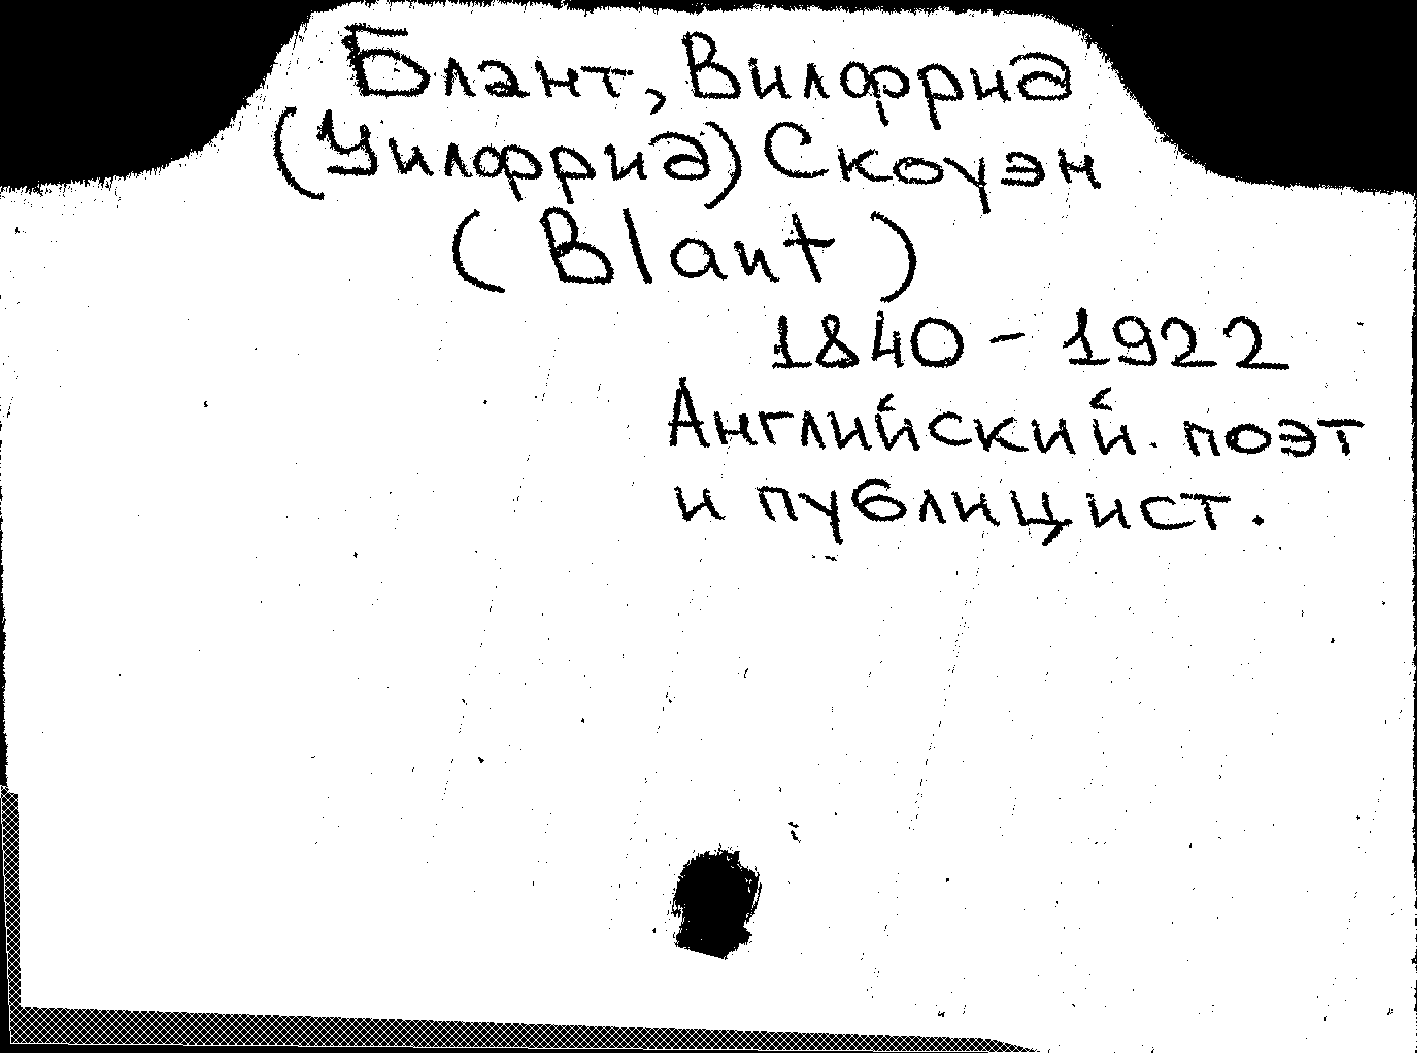 Блант, Вилфрид
(Уилфрид) Скоуэн
(Blant)
1840 - 1922
Английский поэт
и публицист.